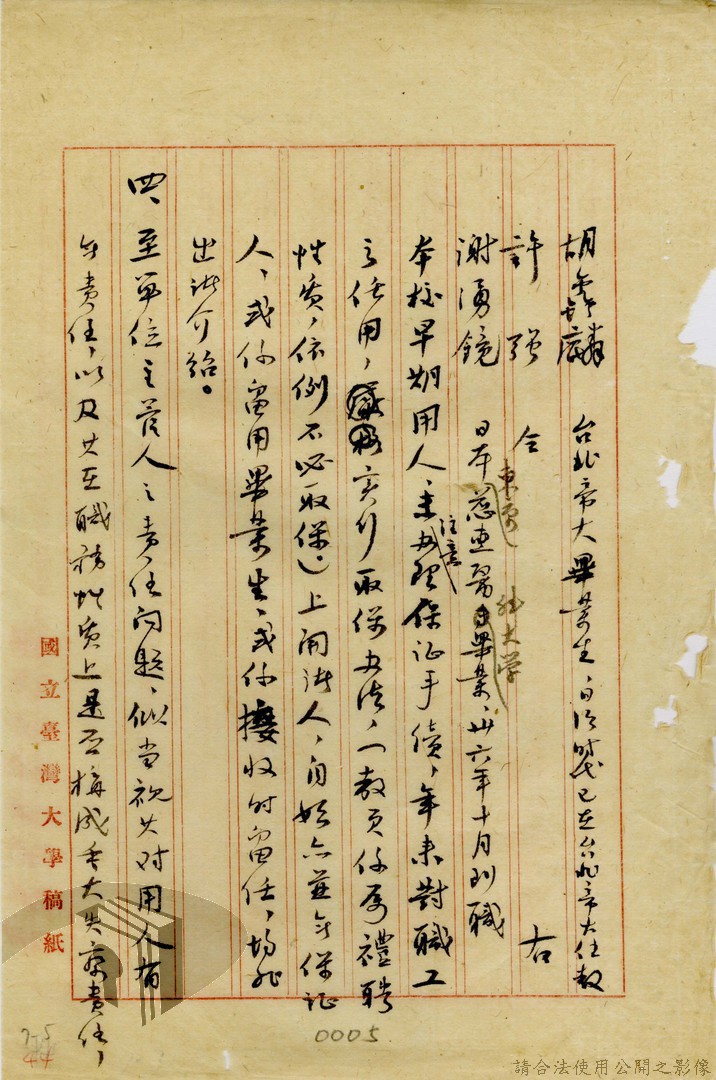 胡鑫麟　台北帝大畢業生，日治時代已在台北帝大任教
許強　仝右
謝湧鏡　日本東京慈惠醫科大学畢業，卅六年十月到職
本校早期用人，未注意保证手續，年來對職工
之任用，實行取保办法，（教員係属禮聘
性質，依例不必取保）上開諸人，自始亦並無保证
人，或係留用畢業生，或係接收时留任，均非
出諸介紹。
四、至單位主管人之責任问題，似當視其对用人有
無責任，以及其在職務性質上是否構成重大失察責任，
國立臺灣大學稿紙
0005
7-5
44
請合法使用公開之影像